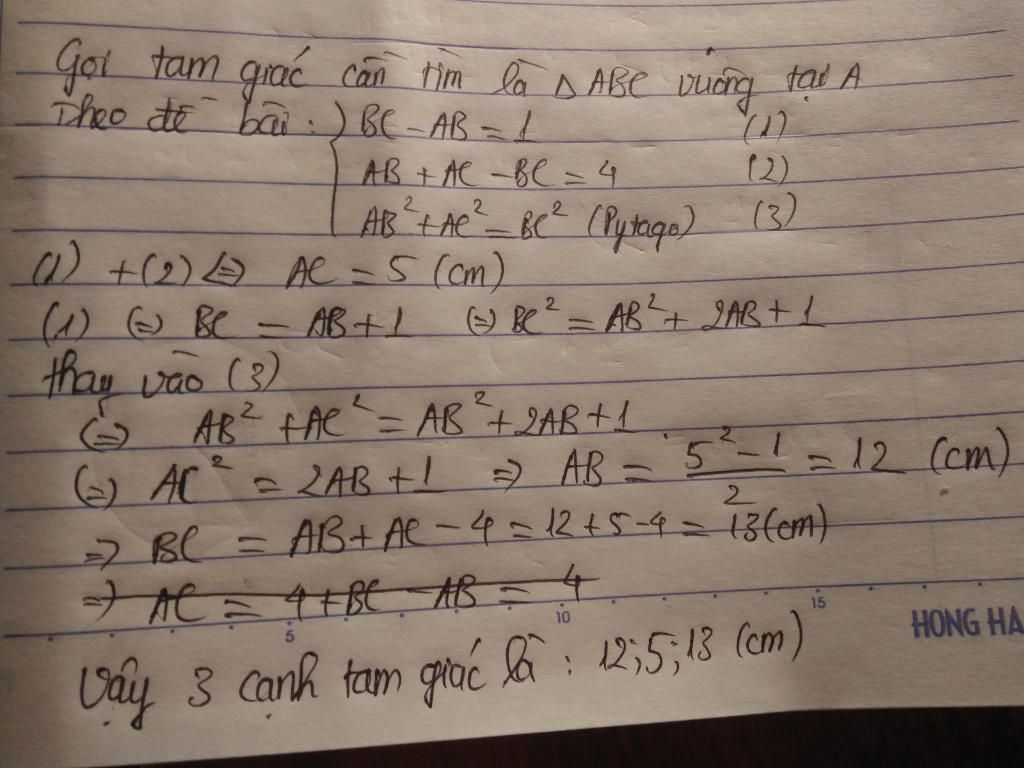 Gọi tam giác cần tìm là Δ ABC vuông tại A
Theo đề bài : } BC - AB = 1 (1)
AB + AC - BC = 4 (2)
AB² + AC² = BC² (Pytago) (3)
(1) + (2) <=> AC = 5 (cm)
(1) (=) BC = AB + 1 (=) BC² = AB² + 2AB + 1
thay vào (3)
(=) AB² + AC² = AB² + 2AB + 1
(=) AC² = 2AB + 1 => AB = (5² - 1)/2 = 12 (cm)
=> BC = AB + AC - 4 = 12 + 5 - 4 = 13 (cm)
=> AC = 4 + BC - AB = 4
5 10 15 HONG HA
Vậy 3 cạnh tam giác là : 12; 5; 13 (cm)